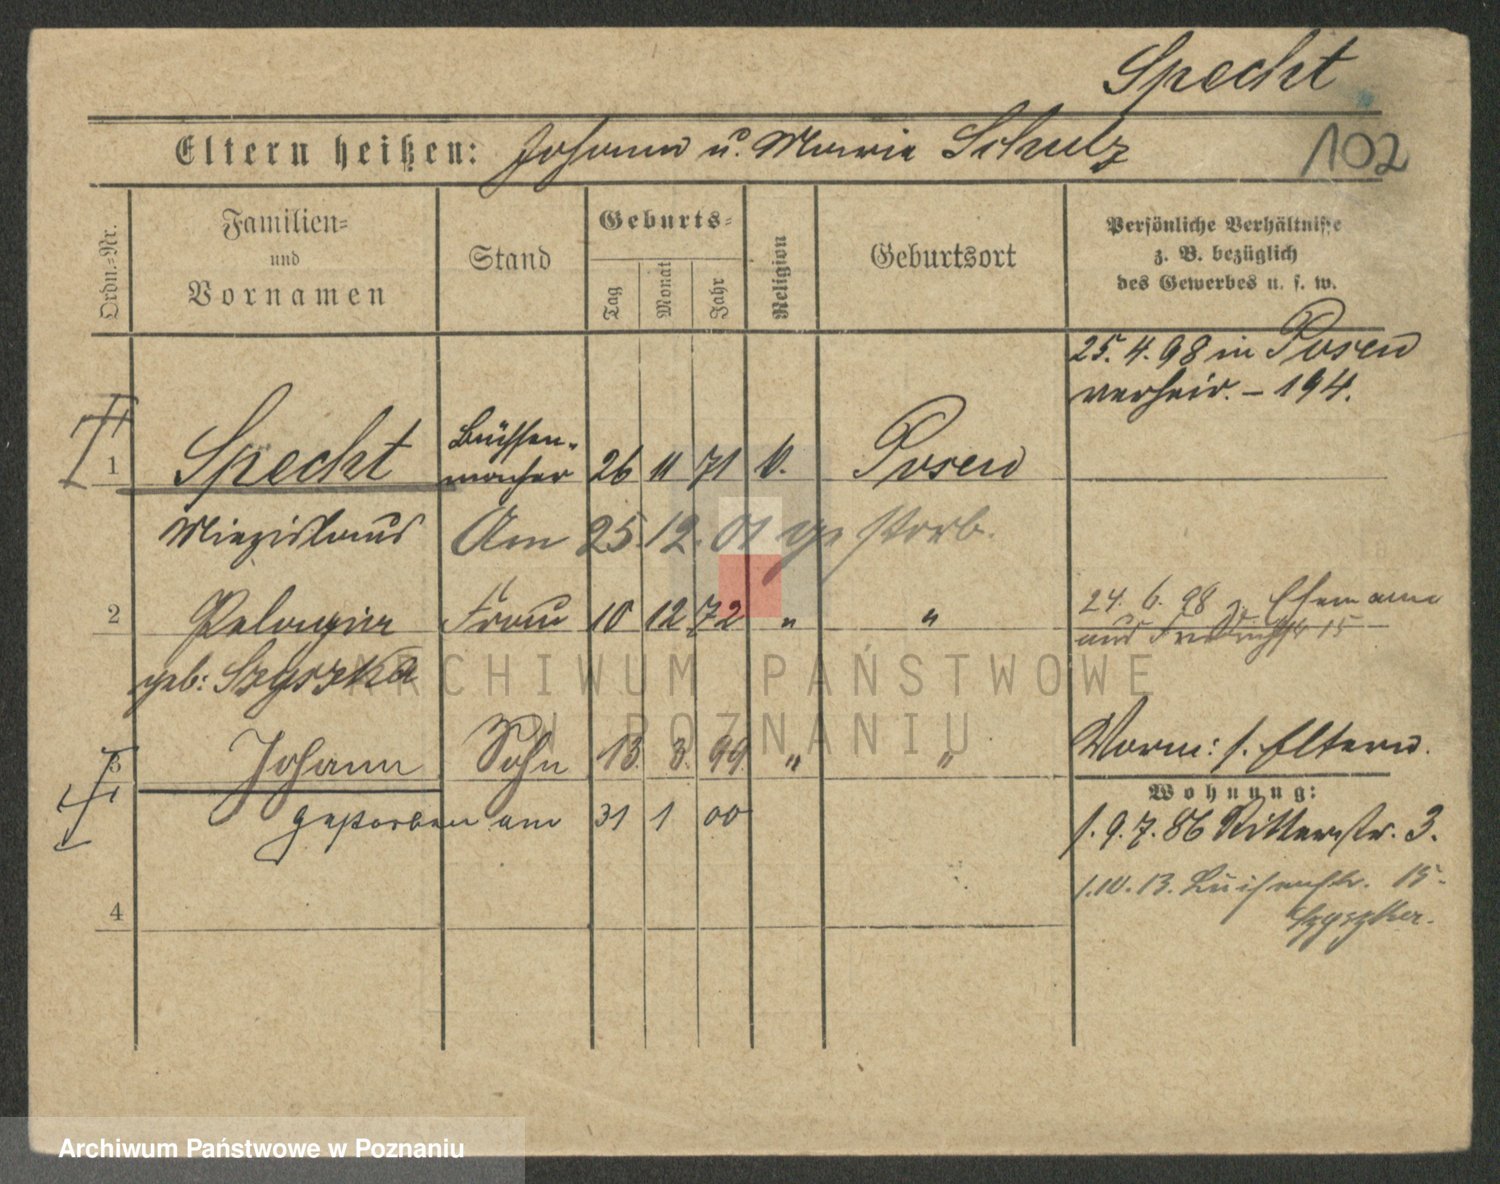 Specht
102
Eltern heißen: Johann u. Marie Schulz
Ordn.-Nr.
Familien-
und
Vornamen
Stand
Geburts-
Tag
Monat
Jahr
Religion
Geburtsort
Persönliche Verhältnisse
z. B. bezüglich
des Gewerbes u. s. w.
25.4.98 in Posen
verheir. – 194.
1 Specht Büchsen-
macher 26 11 71 k. Posen
Miezislaus Am 25.12.01 gestorb.
2 Pelagia Frau 10 12 72 " "
24. 6. 98 z. Ehemann
aus 15
geb: Szyszka
3 Johann Sohn 13 3. 99 " "
Vorm: s. Eltern.
gestorben am 31 1 00
Wohnung:
1.9.7.86 Ritterstr. 3.
1.10.13. Luisenstr. 15.
Szyszka.
4
ARCHIWUM PAŃSTWOWE
W POZNANIU
Archiwum Państwowe w Poznaniu